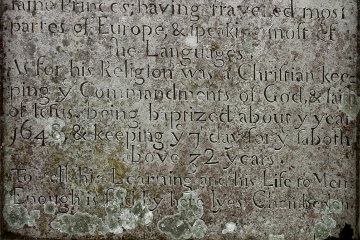 same Princes: having travelled most
partes of Europe, & speaking most of
the Languages.
As for his Religion was a Christian kee
ping y Commandments of God, & faith
of Jesus, being baptized about y year
1648, & keeping y 7 day for y Saboth
above 72 years.
To tell his Learning and his Life to Men
Enough is said by here lyes Chamberlen